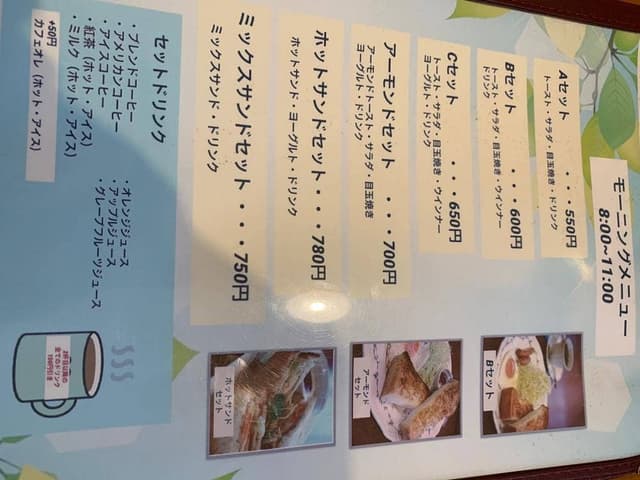 モーニングメニュー
8:00~11:00
Aセット ・・・550円
トースト・サラダ・目玉焼き・ドリンク
Bセット ・・・600円
トースト・サラダ・目玉焼き・ウインナー
ドリンク
Cセット ・・・650円
トースト・サラダ・目玉焼き・ウインナー
ヨーグルト・ドリンク
アーモンドセット ・・・700円
アーモンドトースト・サラダ・目玉焼き
ヨーグルト・ドリンク
ホットサンドセット・・・780円
ホットサンド・ヨーグルト・ドリンク
ミックスサンドセット・・・750円
ミックスサンド・ドリンク
Bセット
アーモンド
セット
ホットサンド
セット
セットドリンク
・ブレンドコーヒー
・アメリカンコーヒー
・アイスコーヒー
・紅茶（ホット・アイス）
・ミルク（ホット・アイス）
・オレンジジュース
・アップルジュース
・グレープフルーツジュース
+50円
カフェオレ（ホット・アイス）
2杯目以降の
全てのドリンク
150円引き